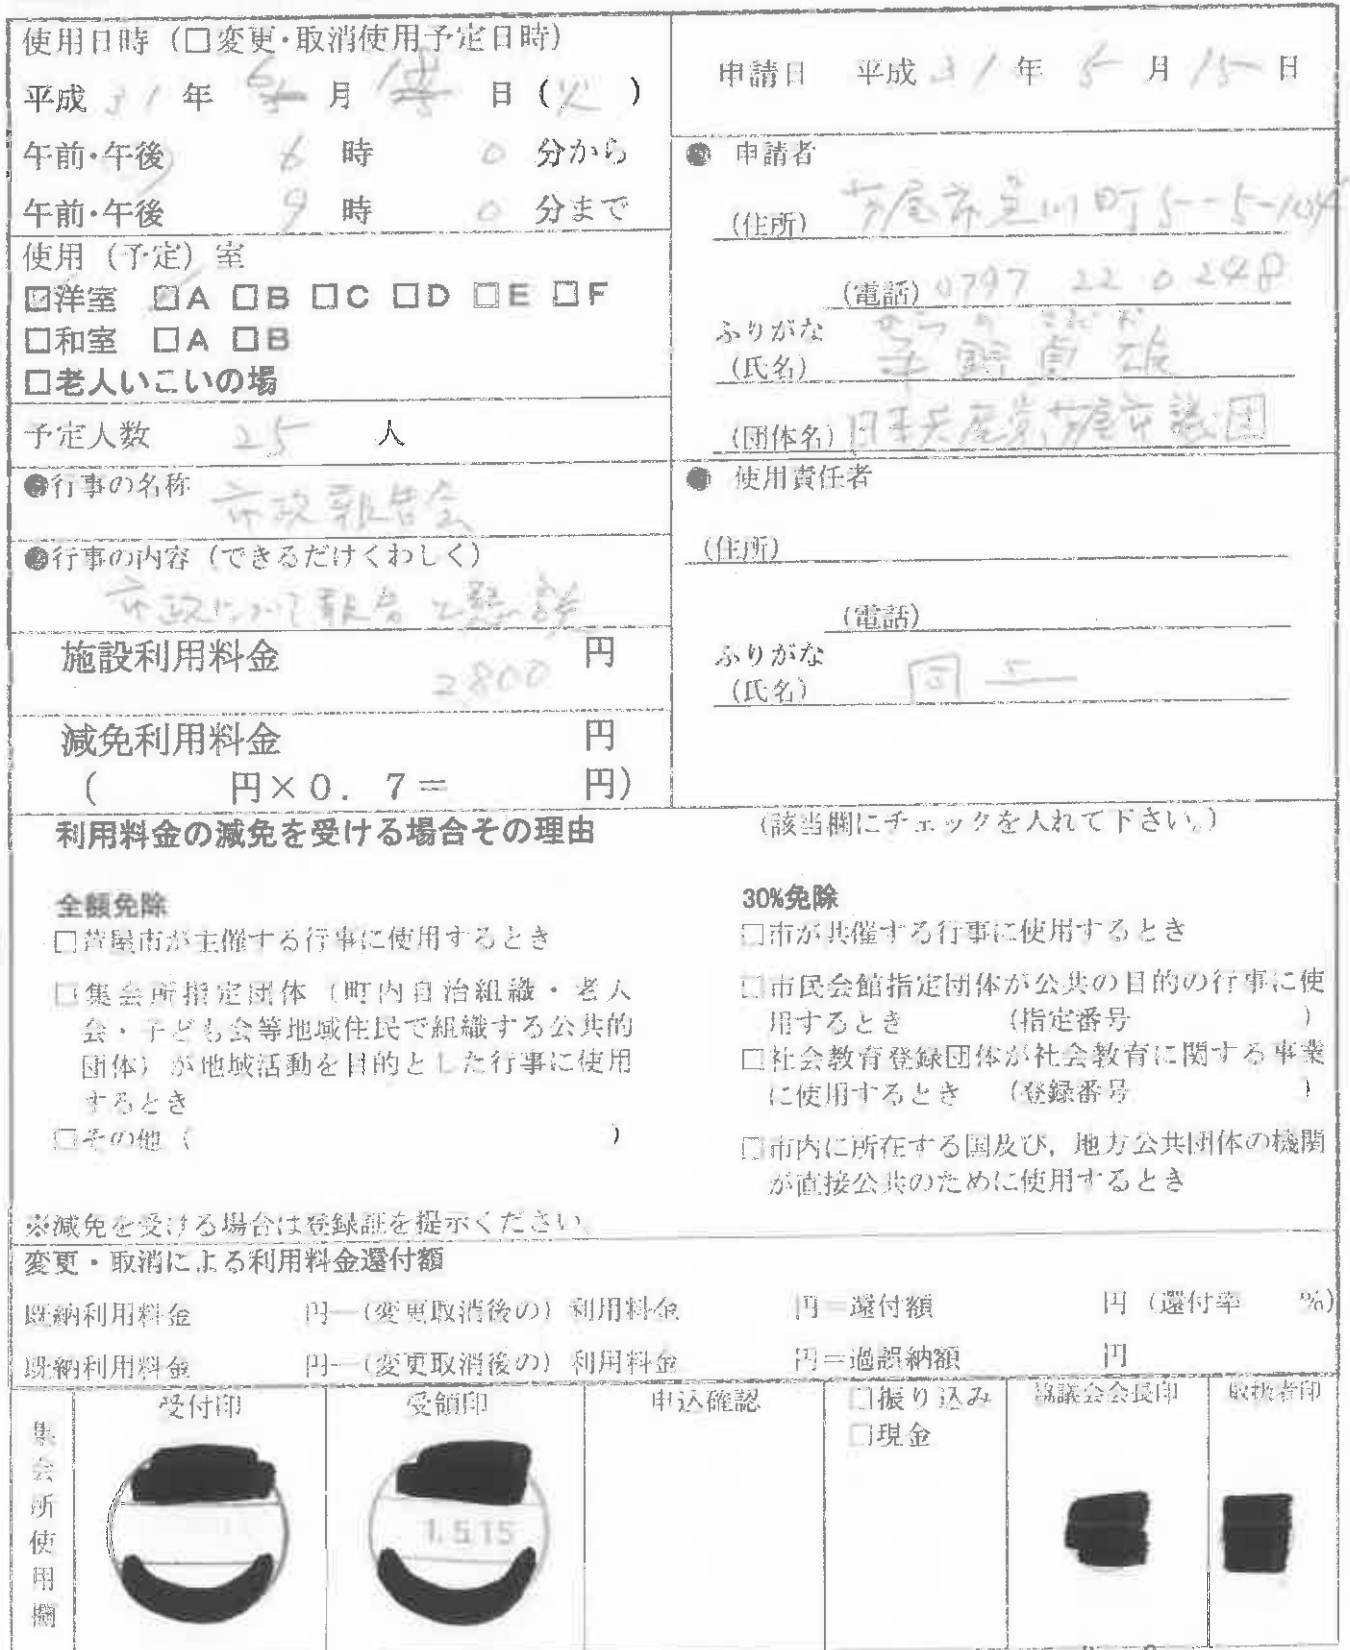 使用日時（□変更・取消使用予定日時）
平成 31 年 6 月 18 日（火）
午前・午後 6 時 0 分から
午前・午後 9 時 0 分まで
使用（予定）室
☑洋室 ☑A □B □C □D □E □F
□和室 □A □B
□老人いこいの場
予定人数 25 人
●行事の名称
市政報告会
●行事の内容（できるだけくわしく）
市政について報告と懇談
施設利用料金 2800 円
減免利用料金 円
（ 円×0．7＝ 円）
申請日 平成 31 年 5 月 15 日
● 申請者
（住所）
（電話）0797 22 0248
ふりがな
（氏名）
（団体名）日本共産党芦屋市議団
● 使用責任者
（住所）
（電話）
ふりがな
（氏名） 同
利用料金の減免を受ける場合その理由 （該当欄にチェックを入れて下さい。）
全額免除
□芦屋市が主催する行事に使用するとき
□集会所指定団体（町内自治組織・老人
会・子ども会等地域住民で組織する公共的
団体）が地域活動を目的とした行事に使用
するとき
□その他（ ）
30%免除
□市が共催する行事に使用するとき
□市民会館指定団体が公共の目的の行事に使
用するとき （指定番号 ）
□社会教育登録団体が社会教育に関する事業
に使用するとき （登録番号 ）
□市内に所在する国及び，地方公共団体の機関
が直接公共のために使用するとき
※減免を受ける場合は登録証を提示ください。
変更・取消による利用料金還付額
既納利用料金 円－（変更取消後の）利用料金 円＝還付額 円（還付率 %）
既納利用料金 円－（変更取消後の）利用料金 円＝過誤納額 円
集会所使用欄
受付印
受領印
1.5.15
申込確認
□振り込み
□現金
協議会会長印
取扱者印